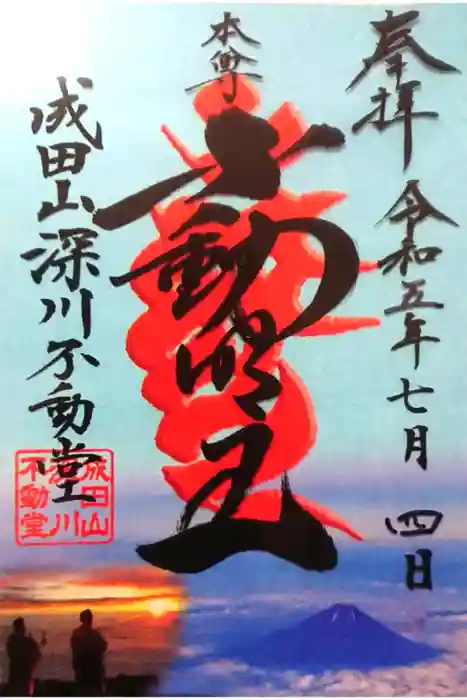 奉拝
令和五年七月四日
本尊
不動明王
成田山深川不動堂
成田山
深川
不動堂